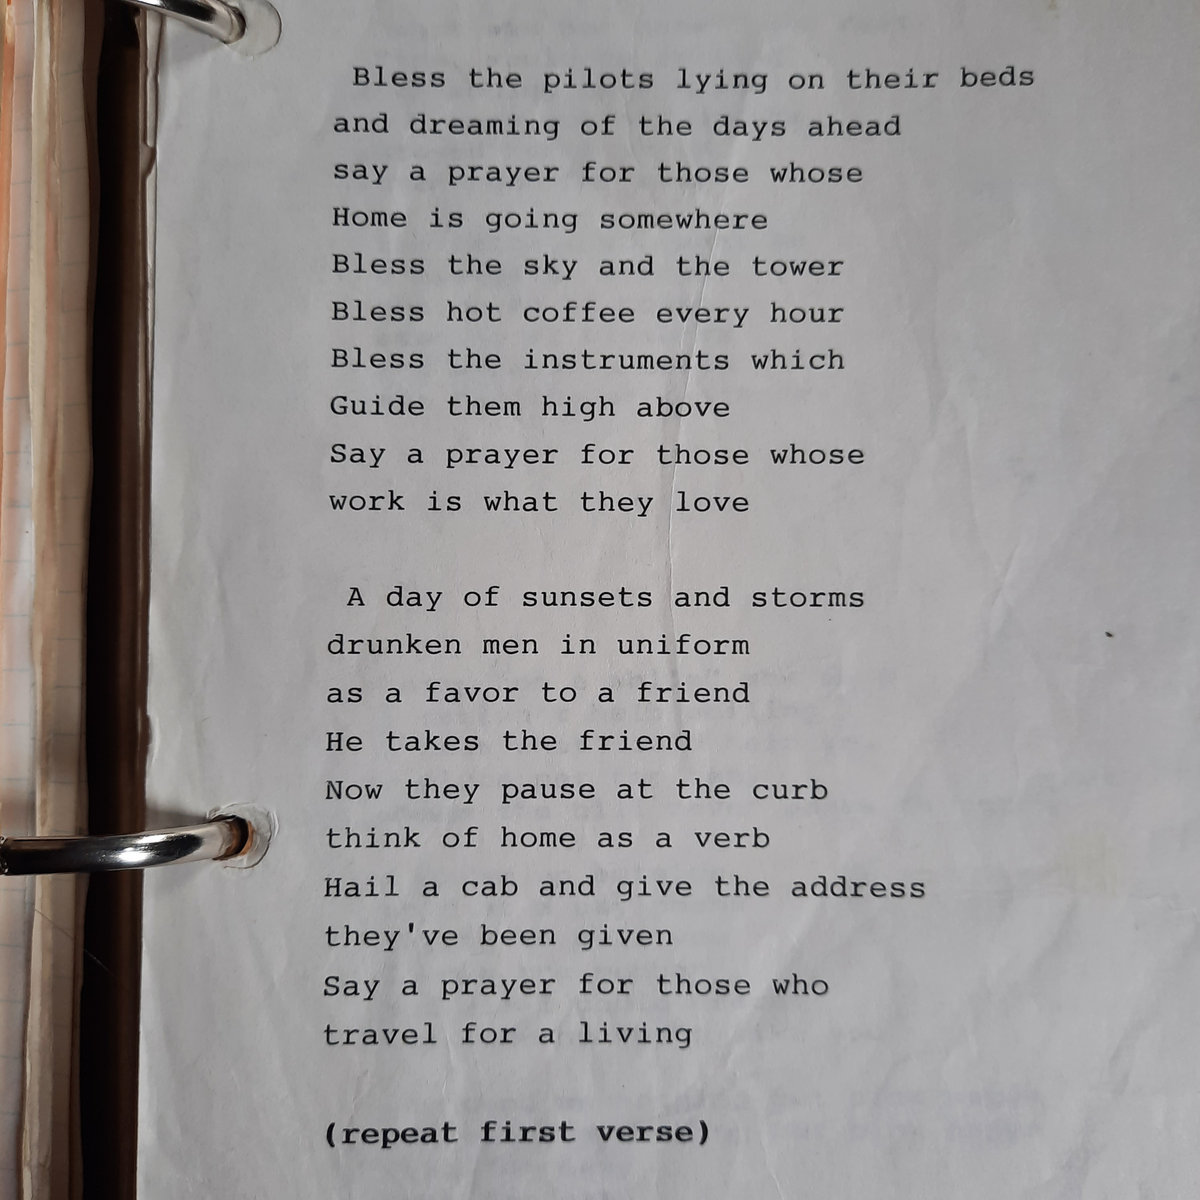 Bless the pilots lying on their beds
and dreaming of the days ahead
say a prayer for those whose
Home is going somewhere
Bless the sky and the tower
Bless hot coffee every hour
Bless the instruments which
Guide them high above
Say a prayer for those whose
work is what they love
A day of sunsets and storms
drunken men in uniform
as a favor to a friend
He takes the friend
Now they pause at the curb
think of home as a verb
Hail a cab and give the address
they've been given
Say a prayer for those who
travel for a living
(repeat first verse)